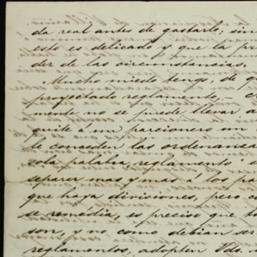 da real antes de gastarlo, sin
esto es delicado y que la pr
der de las circunstancias.
Mucho miedo tengo de q
proyectado reglamento,
mente no se puede llevar a
quite a un parcionero un
le conceden las ordenanza
sola palabra, reglamento
separar mas y mas a los pa
que haya divisiones, pero c
se remedia, es preciso que
son, y no como debian ser
reglamentos, adopten Vds.